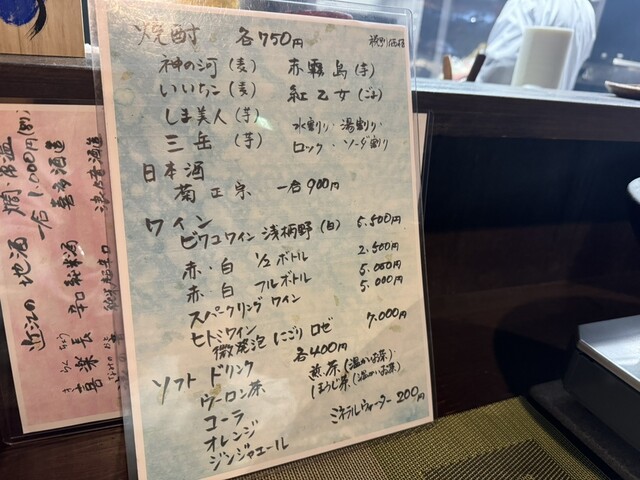 焼酎 各750円 税別価格
神の河(麦) 赤霧島(芋)
いいちこ(麦) 紅乙女(ごま)
しま美人(芋) 水割り・湯割り・
三岳(芋) ロック・ソーダ割り
日本酒
菊正宗 一合900円
ワイン
ビワコワイン 浅柄野(白) 5,500円
赤・白 1/2ボトル 2,500円
赤・白 フルボトル 5,000円
スパークリングワイン 5,000円
セトミワイン
微発泡 にごり ロゼ 7,000円
ソフトドリンク 各400円
ウーロン茶 煎茶(温かいお茶)
コーラ ほうじ茶(温かいお茶)
オレンジ
ジンジャエール ミネラルウォーター 200円
近江の地酒 燗・常温
一合1,000円(別)
喜楽長 辛口純米酒 喜多酒造